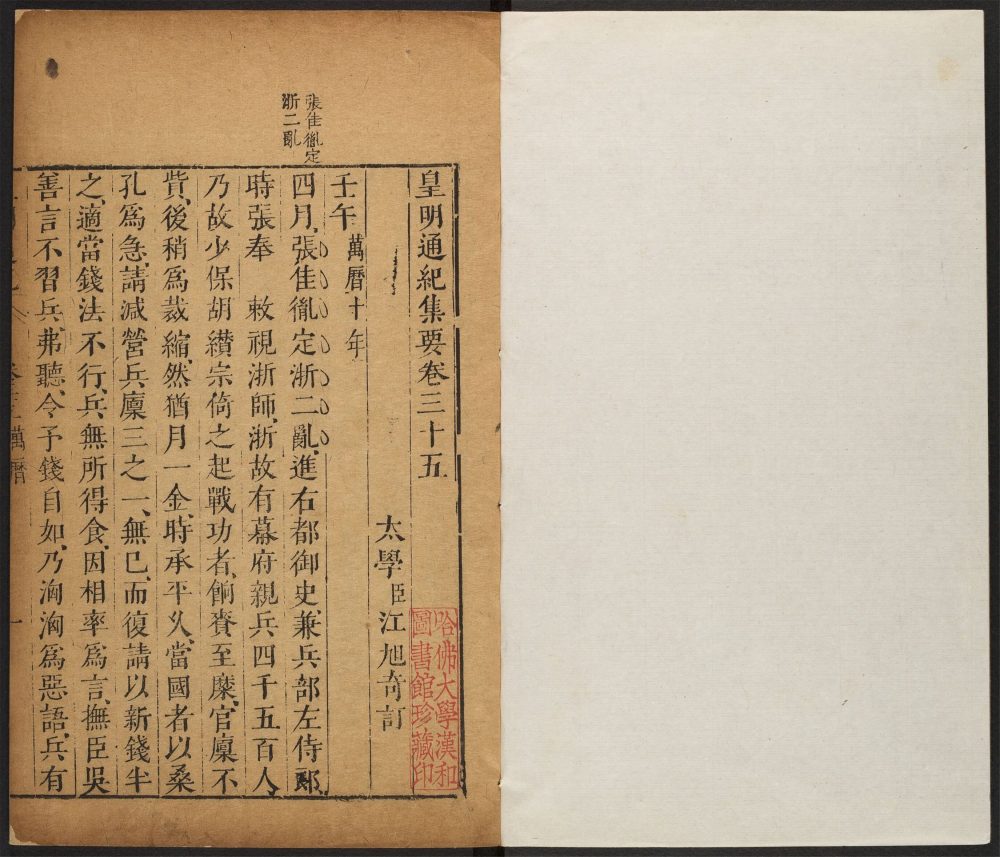 皇明通紀集要卷三十五
太學臣江旭奇訂
壬午萬曆十年
張佳胤定
浙二亂
四月、張佳胤定浙二亂、進右都御史兼兵部左侍郎、
時張奉　敕視浙師、浙故有幕府親兵四千五百人、
乃故少保胡纉宗倚之起戰功者、餉賚至糜、官廩不
貲、後稍爲裁縮、然猶月一金、時承平久、當國者以桑
孔爲急、請減營兵廩三之一、無已、而復請以新錢半
之、適當錢法不行、兵無所得食、因相率爲言、撫臣吳
善言不習兵、弗聽、令予錢自如、乃洶洶爲惡語、兵有
萬曆
一
哈佛大學漢和
圖書館珍藏印